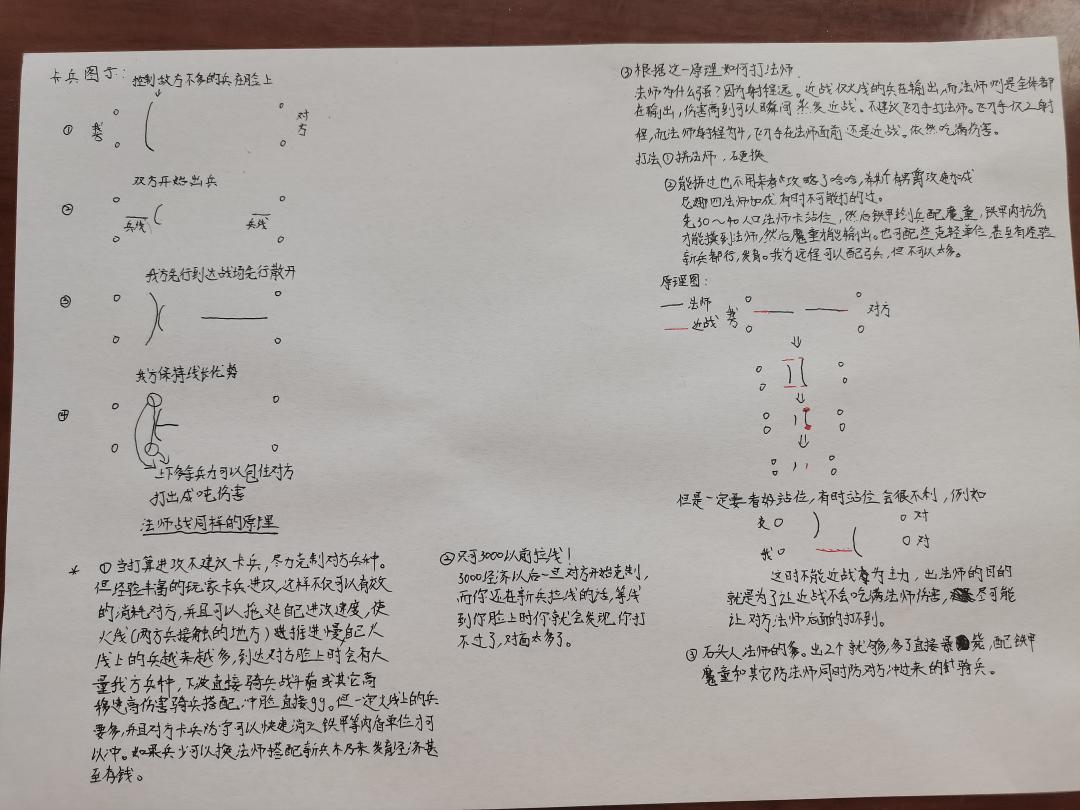 卡兵图示:
控制敌方不多的兵在脸上
① 我方 对方
双方开始出兵
② 兵线 兵线
我方先行到达战场先行散开
③
我方保持线长优势
④
上下多余兵力可以包住对方
打出成吨伤害
法师战同样的原理
* ①当打算进攻不建议卡兵,尽力克制对方兵种。
但经验丰富的玩家卡兵进攻,这样不仅可以有效
的消耗对方,并且可以拖延自己进攻速度,使
火线(两方兵接触的地方)推进慢自己火
线上的兵越来越多,到达对方脸上时会有大
量我方兵种,下波直接骑兵战斗猫或其它高
移速高伤害骑兵搭配,冲脸直接gg。但一定火线上的兵
要多,并且对方卡兵防守可以快速消灭铁甲等肉盾单位才可
以冲。如果兵少可以换法师搭配新兵木乃来发育经济甚
至存钱。
②只可3000以前拉线!
3000经济以后一旦对方开始克制,
而你还在新兵拉线的话,等线
到你脸上时你就会发现,你打
不过了,对面太多了。
③根据这一原理如何打法师.
法师为什么强?因为射程远。近战仅火线的兵在输出,而法师则是全体都
在输出,伤害高到可以瞬间蒸发近战。不建议飞刀手打法师。飞刀手仅2射
程,而法师射程为4,飞刀手在法师面前还是近战。依然吃满伤害。
打法①拼法师,硬换
②能拼过也不用来看攻略了哈哈,有男离攻速加成
四法师加成有时不可能打的过。
先30~40人口法师卡站位,然后铁甲新兵配魔童,铁甲肉抗伤
才能摸到法师,然后魔童才能输出。也可配些克轻单位甚至有经验
新兵都行,发育。我方远程可以配弓兵,但不可以太多。
原理图:
法师 我方 对方
近战
但是一定要看好站位,有时站位会很不利,例如
友 对
我 对
这时不能近战为主力,出法师的目的
就是为了让近战不会吃满法师伤害,尽可能
让对方法师后面的打不到。
③石头人法师的爹。出2个就够,多了直接暴毙,配铁甲
魔童和其它防法师同时防对方冲过来的骑兵。